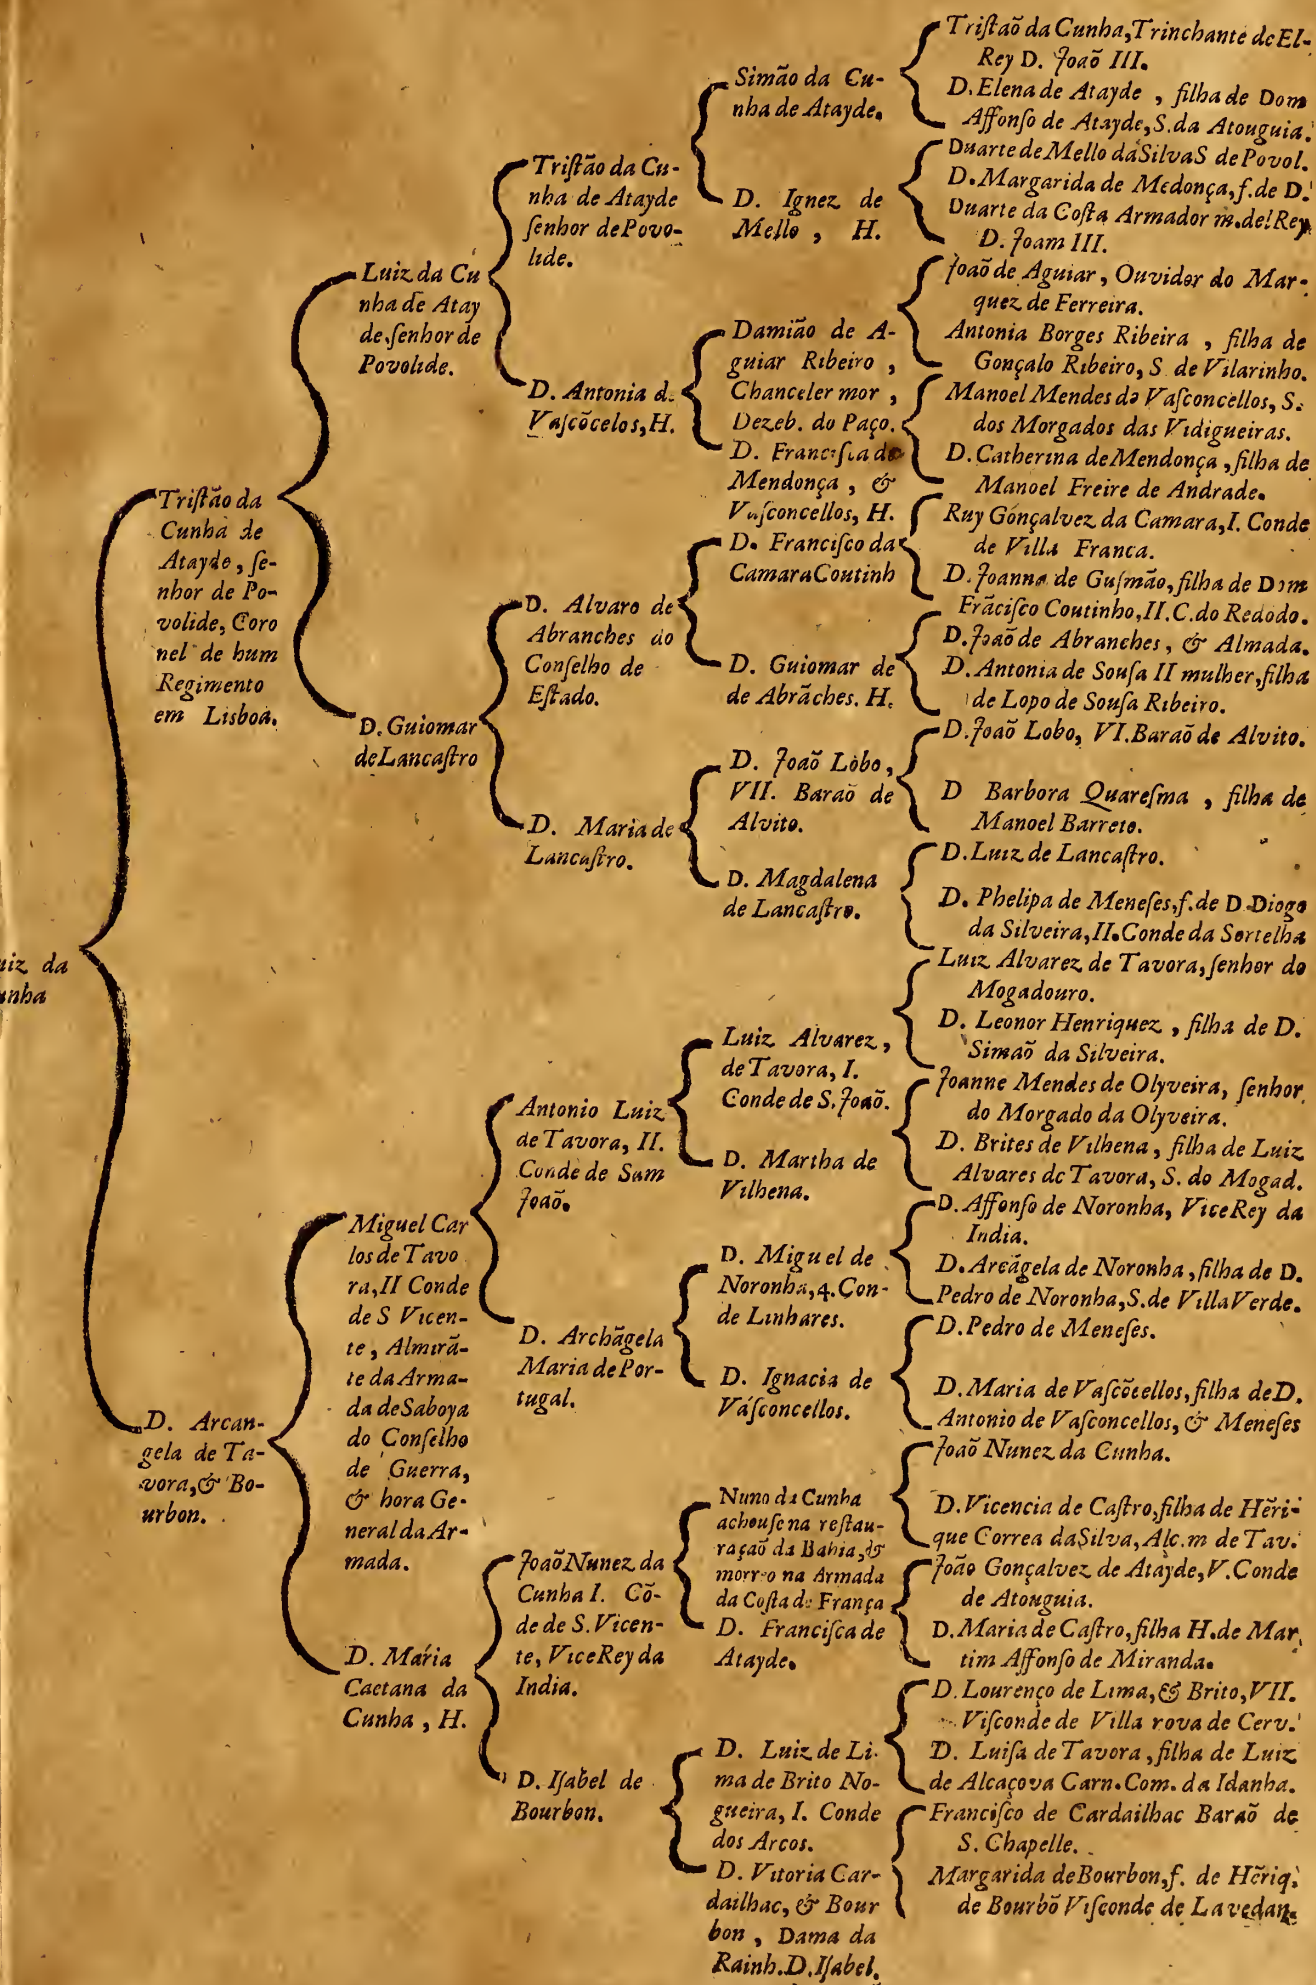 uiz da
unha
Tristão da
Cunha de
Atayde, se-
nhor de Po-
volide, Coro
nel de hum
Regimento
em Lisboa.
D. Arcan-
gela de Ta-
vora, & Bo-
urbon.
Luiz da Cu
nha de Atay
de, senhor de
Povolide.
D. Guiomar
de Lancastro
Miguel Car
los de Tavo
ra, II Conde
de S Vicen-
te, Almirã-
te da Arma-
da de Saboya
do Conselho
de Guerra,
& hora Ge-
neral da Ar-
mada.
D. Maria
Caetana da
Cunha, H.
Tristão da Cu-
nha de Atayde
senhor de Povo-
lide.
D. Antonia de
Vascõcelos, H.
D. Alvaro de
Abranches do
Conselho de
Estado.
D. Maria de
Lancastro.
Antonio Luiz
de Tavora, II.
Conde de Sam
Joaõ.
D. Archãgela
Maria de Por-
tugal.
Joaõ Nunez da
Cunha I. Cõ-
de de S. Vicen-
te, ViceRey da
India.
D. Isabel de
Bourbon.
Simão da Cu-
nha de Atayde.
D. Ignez de
Mello, H.
Damião de A-
guiar Ribeiro,
Chanceler mor,
Dezeb. do Paço.
D. Francisca de
Mendonça, &
Vasconcellos, H.
D. Francisco da
Camara Coutinh
D. Guiomar de
de Abrãches. H.
D. Joaõ Lobo,
VII. Baraõ de
Alvito.
D. Magdalena
de Lancastro.
Luiz Alvarez,
de Tavora, I.
Conde de S. Joaõ.
D. Martha de
Vilhena.
D. Miguel de
Noronha, 4. Con-
de Linhares.
D. Ignacia de
Vasconcellos.
Nuno da Cunha
achouse na restau-
raçaõ da Bahia, &
morreo na Armada
da Costa de França
D. Francisca de
Atayde.
D. Luiz de Li-
ma de Brito No-
gueira, I. Conde
dos Arcos.
D. Vitoria Car-
dailhac, & Bour
bon, Dama da
Rainh. D. Isabel.
Tristaõ da Cunha, Trinchante de El-
Rey D. Joaõ III.
D. Elena de Atayde, filha de Dom
Affonso de Atayde, S. da Atouguia.
Duarte de Mello da Silva S de Povol.
D. Margarida de Medonça, f. de D.
Duarte da Costa Armador m. del Rey
D. Joam III.
Joaõ de Aguiar, Ouvidor do Mar-
quez de Ferreira.
Antonia Borges Ribeira, filha de
Gonçalo Ribeiro, S. de Vilarinho.
Manoel Mendes de Vasconcellos, S.
dos Morgados das Vidigueiras.
D. Catherina de Mendonça, filha de
Manoel Freire de Andrade.
Ruy Gonçalvez da Camara, I. Conde
de Villa Franca.
D. Joanna de Gusmão, filha de Dom
Frãcisco Coutinho, II. C. do Redodo.
D. Joaõ de Abranches, & Almada.
D. Antonia de Sousa II mulher, filha
de Lopo de Sousa Ribeiro.
D. Joaõ Lobo, VI. Baraõ de Alvito.
D Barbora Quaresma, filha de
Manoel Barreto.
D. Luiz de Lancastro.
D. Phelipa de Meneses, f. de D. Diogo
da Silveira, II. Conde da Sortelha
Luiz Alvarez de Tavora, senhor do
Mogadouro.
D. Leonor Henriquez, filha de D.
Simaõ da Silveira.
Joanne Mendes de Olyveira, senhor
do Morgado da Olyveira.
D. Brites de Vilhena, filha de Luiz
Alvares de Tavora, S. do Mogad.
D. Affonso de Noronha, ViceRey da
India.
D. Arcãgela de Noronha, filha de D.
Pedro de Noronha, S. de Villa Verde.
D. Pedro de Meneses.
D. Maria de Vascõcellos, filha de D.
Antonio de Vasconcellos, & Meneses
Joaõ Nunez da Cunha.
D. Vicencia de Castro, filha de Hẽri-
que Correa da Silva, Alc. m de Tav.
João Gonçalvez de Atayde, V. Conde
de Atouguia.
D. Maria de Castro, filha H. de Mar
tim Affonso de Miranda.
D. Lourenço de Lima, & Brito, VII.
Visconde de Villa rova de Cerv.
D. Luisa de Tavora, filha de Luiz
de Alcaçova Carn. Com. da Idanha.
Francisco de Cardailhac Baraõ de
S. Chapelle.
Margarida de Bourbon, f. de Hẽriq.
de Bourbõ Visconde de Lavedan.